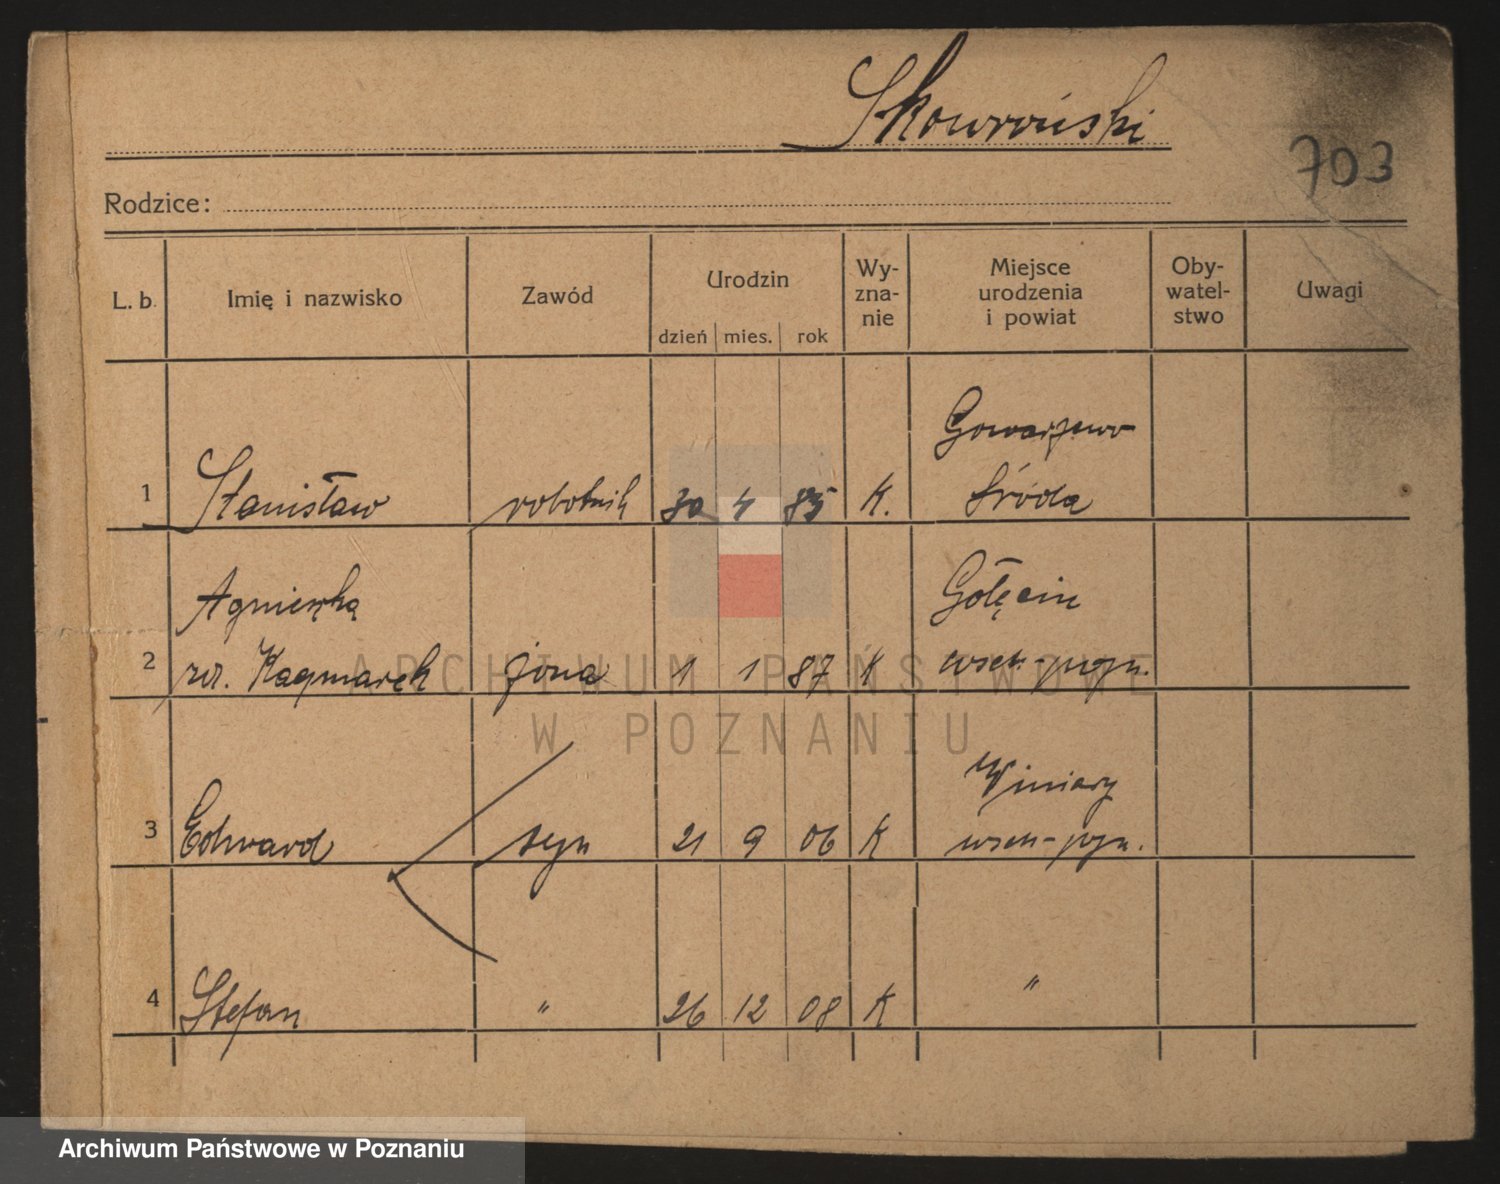 Skowroński
703
Rodzice:
L. b. Imię i nazwisko Zawód Urodzin dzień mies. rok Wy-zna-nie Miejsce urodzenia i powiat Oby-watel-stwo Uwagi
Gowarzewo
1 Stanisław robotnik 30 4 85 K. Środa
Agnieszka Golęcin
2 Kaczmarek żona 1 1 87 K
ARCHIWUM PAŃSTWOWE
W POZNANIU
Winiary
3 Edward syn 21 9 06 K
4 Stefan " 26 12 08 K "
Archiwum Państwowe w Poznaniu